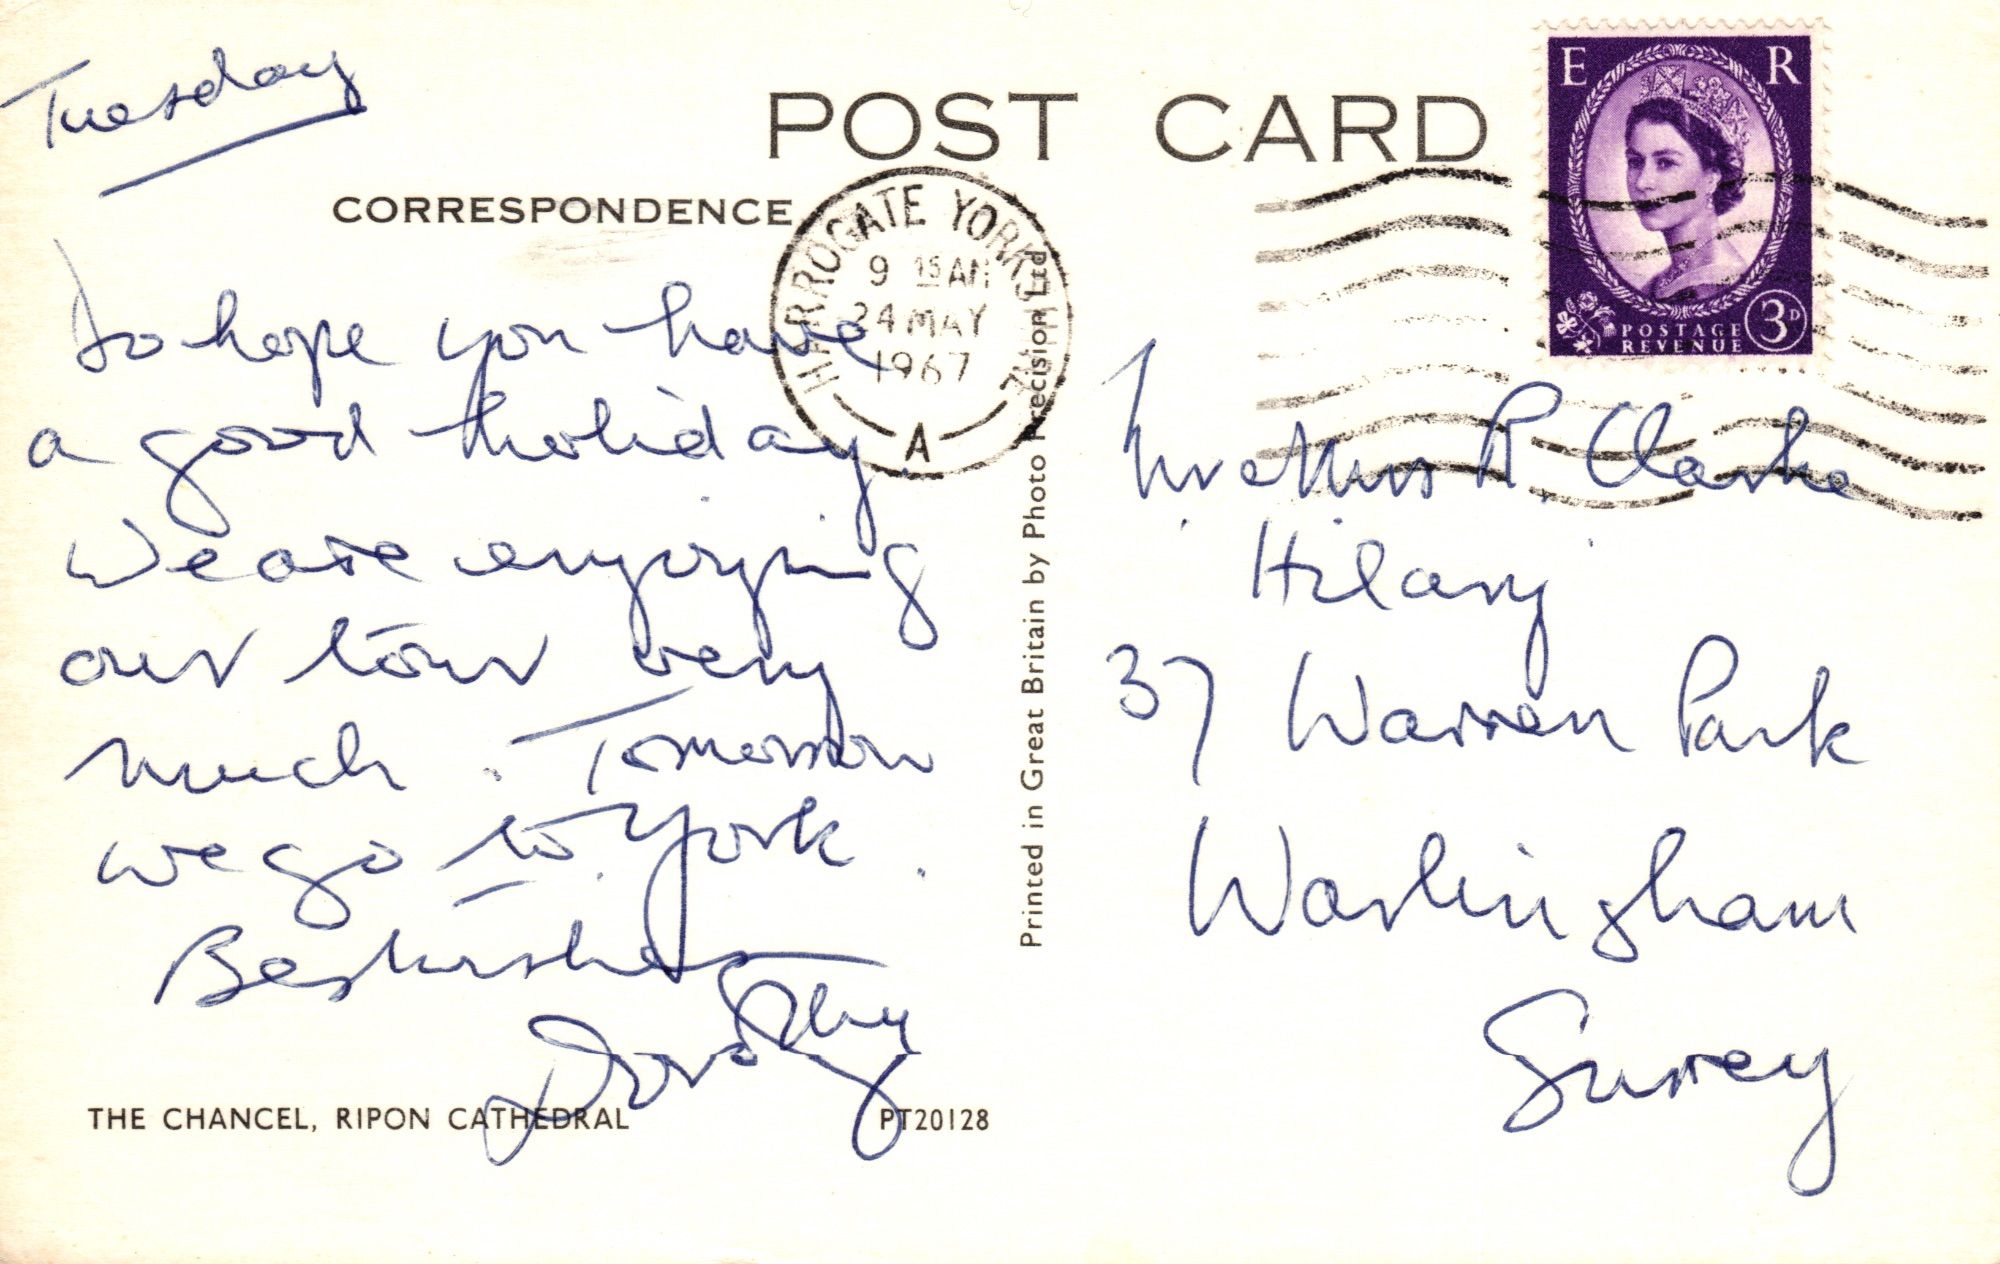 Tuesday
POST CARD
CORRESPONDENCE
Do hope you have
a good holiday.
We are enjoying
our tour very
much. Tomorrow
we go to York.
Best wishes
Dorothy
THE CHANCEL, RIPON CATHEDRAL PT20128
Printed in Great Britain by Photo Precision Ltd
HARROGATE YORKSHIRE
9 15 AM
24 MAY
1967
A
E R
POSTAGE
REVENUE
3D
Mr & Mrs R. Clarke
Hilary
37 Warren Park
Warlingham
Surrey